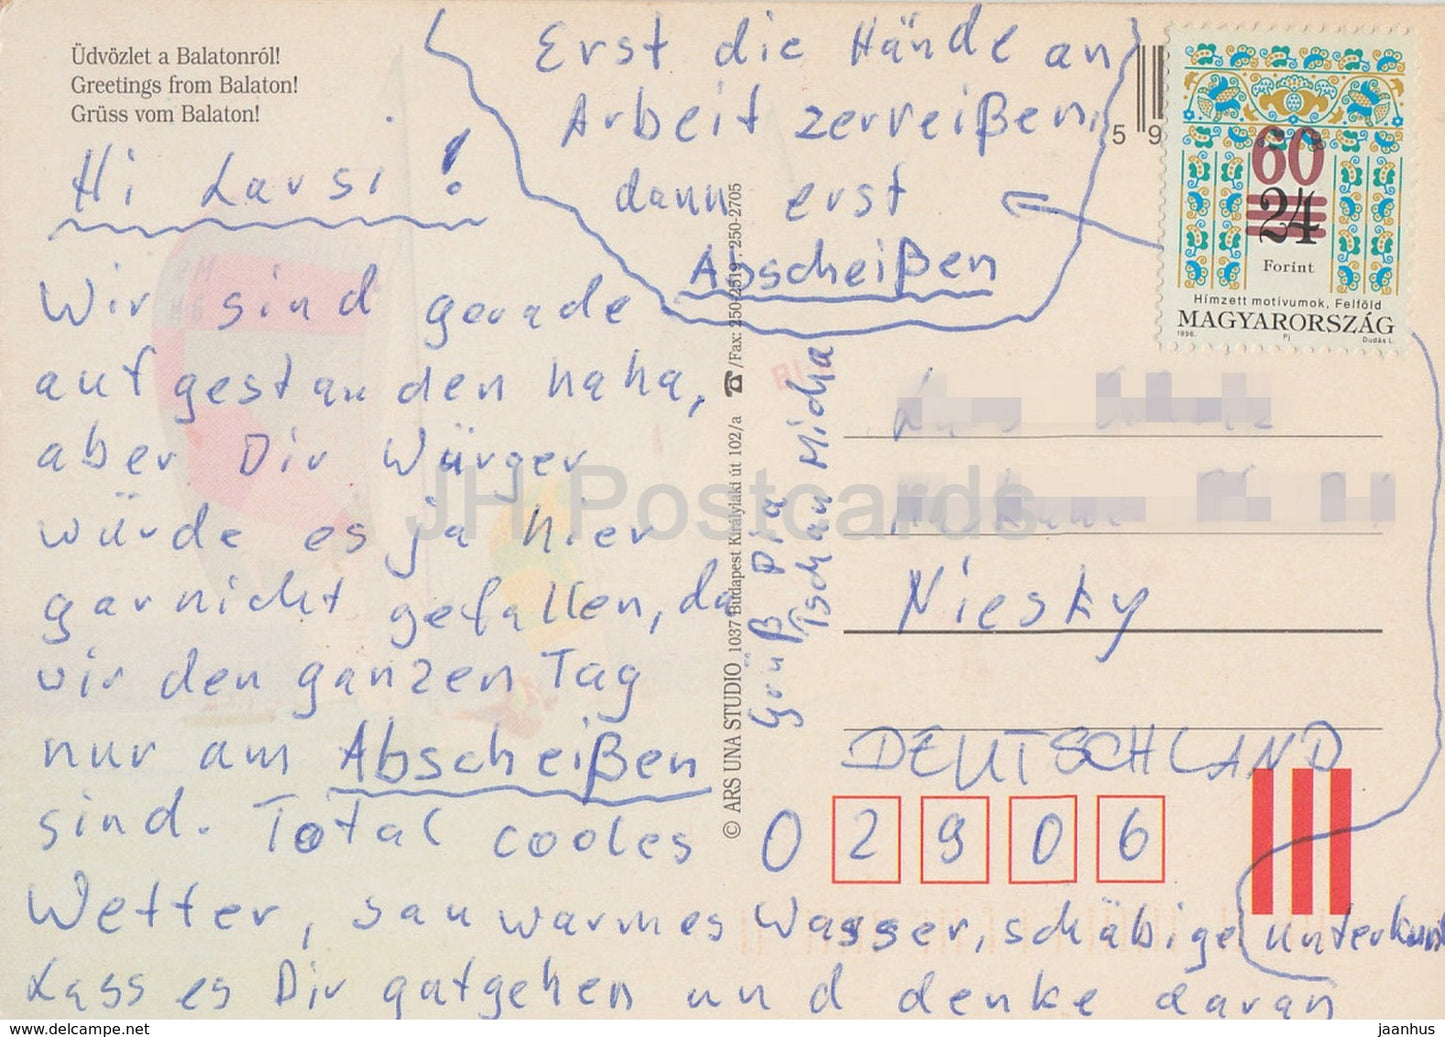 Üdvözlet a Balatonról!
Greetings from Balaton!
Grüss vom Balaton!
Hi Larsi!
Wir sind gerade
aufgestanden haha,
aber Dir Würger
würde es ja hier
garnicht gefallen, da
wir den ganzen Tag
nur am Abscheißen
sind. Total cooles
Wetter, sau warmes Wasser, schäbige Unterkunft
Lass es Dir gutgehen und denke daran
Erst die Hände an
Arbeit zerreißen,
dann erst
Abscheißen
Gruß Pia
Tschau Micha
© ARS UNA STUDIO 1037 Budapest Királylaki út 102/a ☎/Fax: 250-2519, 250-2705
5 9
60
24
Forint
Hímzett motívumok, Felföld
MAGYARORSZÁG
1996. Pj Dudás l.
Niesky
DEUTSCHLAND
0 2906
JH Postcards
www.delcampe.net
jaanhus